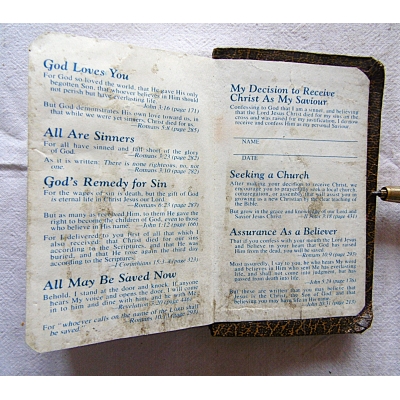 God Loves You
For God so loved the world, that He gave His only
begotten Son, that whoever believes in Him should
not perish but have everlasting life.
—John 3:16 (page 171)
But God demonstrates His own love toward us, in
that while we were yet sinners, Christ died for us.
—Romans 5:8 (page 285)
All Are Sinners
For all have sinned and fall short of the glory
of God. —Romans 3:23 (page 282)
As it is written, There is none righteous, no, not
one. —Romans 3:10 (page 282)
God's Remedy for Sin
For the wages of sin is death, but the gift of God
is eternal life in Christ Jesus our Lord.
—Romans 6:23 (page 287)
But as many as received Him, to them He gave the
right to become the children of God, even to those
who believe in His name —John 1:12 (page 166)
For I delivered to you first of all that which I
also received: that Christ died for our sins
according to the Scriptures, and that He was
buried, and that He rose again the third day
according to the Scriptures.
—1 Corinthians 15:3,4 (page 323)
All May Be Saved Now
Behold, I stand at the door and knock. If anyone
hears My voice and opens the door, I will come
in to him and dine with him, and he with Me.
—Revelation 3:20
For "whoever calls on the name of the LORD shall
be saved." —Romans 10:13
My Decision to Receive
Christ As My Saviour
Confessing to God that I am a sinner, and believing
that the Lord Jesus Christ died for my sins on the
cross and was raised for my justification, I do now
receive and confess Him as my personal Saviour.
NAME
DATE
Seeking a Church
After making your decision to receive Christ, we
encourage you to prayerfully seek a local church,
growing as a new Christian by
the Bible.
But grow in the grace and knowledge of our Lord and
Savior Jesus Christ —2 Peter 3:18
Assurance As a Believer
That if you confess with your mouth the Lord Jesus
and believe in your heart that God has raised
Him from the dead, you will be saved.
—Romans 10:9 (page 293)
Most assuredly, I say to you, he who hears My word
and believes in Him who sent Me has everlasting
life, and shall not come into judgment, but has
passed from death into life.
—John 5:24
But these are written that you may believe that
Jesus is the Christ, the Son of God, and that
believing you may have life in His name.
—John 20:31